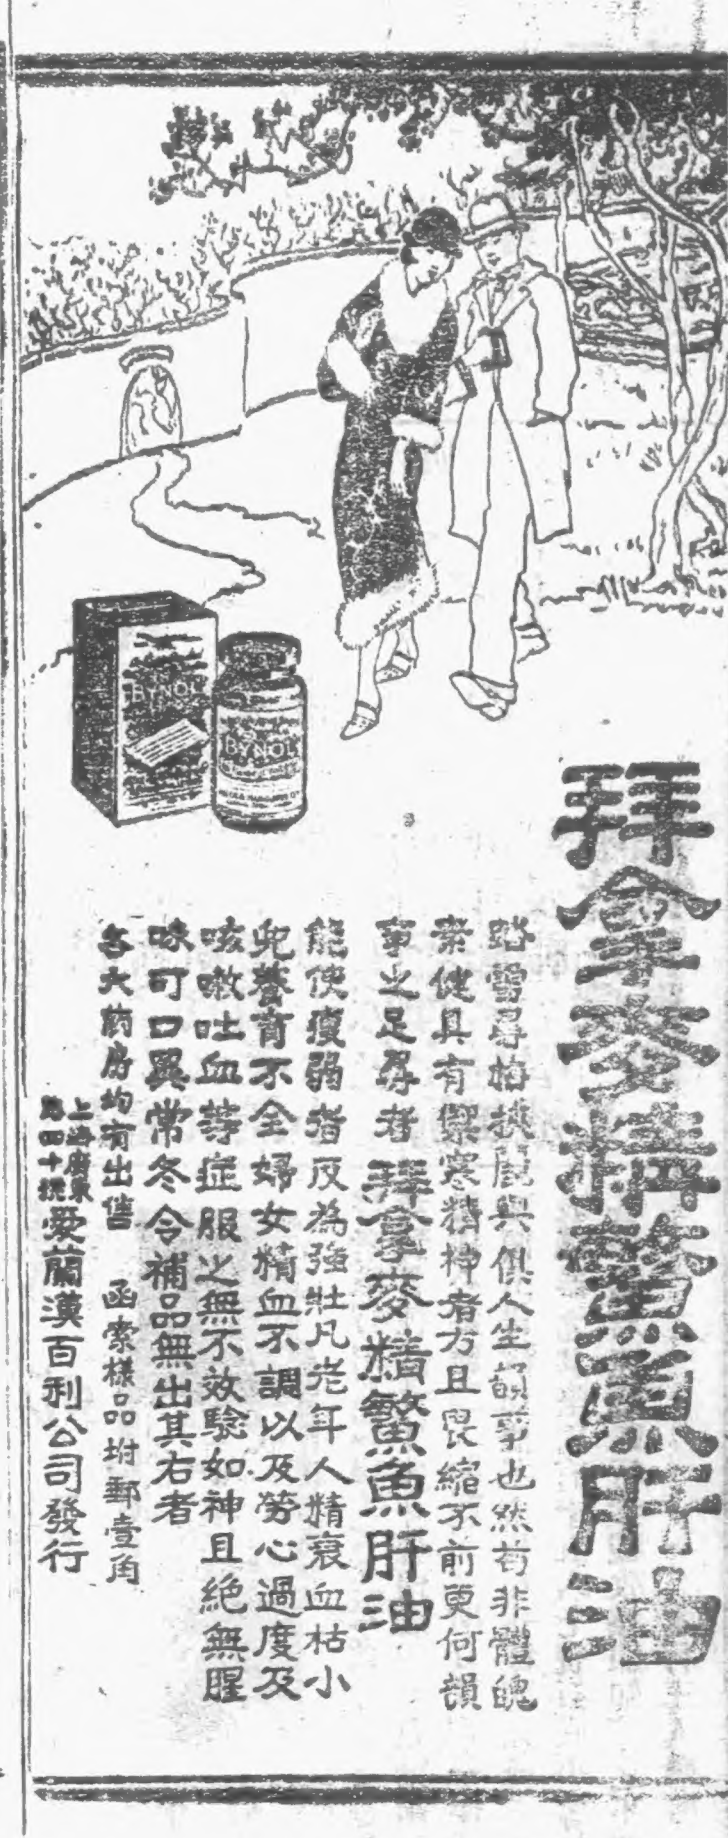 拜拿麥精鱉魚肝油
踏雪尋梅挾麗與俱人生韻事也然苟非體魄
素健具有禦寒精神者方且畏縮不前更何韻
事之足尋者拜拿麥精鱉魚肝油
能使瘦弱者反為強壯凡老年人精衰血枯小
兒養育不全婦女精血不調以及勞心過度及
咳嗽吐血等症服之無不效驗如神且絕無腥
味可口異常冬令補品無出其右者
各大葯房均有出售　函索樣品坿郵壹角
上海廣東
路四十號
愛蘭漢百利公司發行
BYNOL
BYNOL